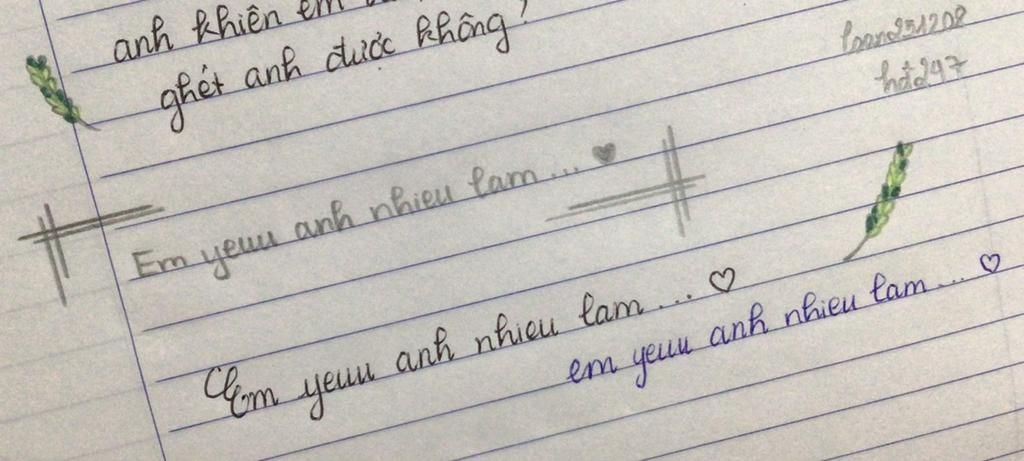 anh khiên em
ghét anh được không?
loand251208
hđ297
Em yeuu anh nhieu lam... ♥
Em yeuu anh nhieu lam... ♡
em yeuu anh nhieu lam... ♡